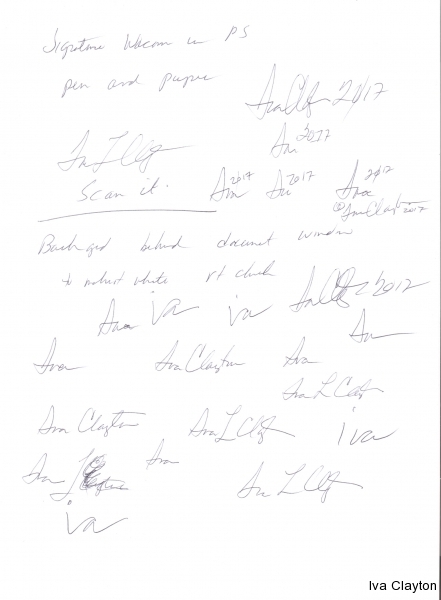 Signature Wacom in PS
pen and paper
Iva Clay 2017
Iva 2017
Iva L Clay
Scan it.
Iva 2017 Iva 2017 Iva 2017
© Iva Clayton 2017
behind document window
to white rt click
Iva Clay 2012
Iva iva iva
Iva
Iva Iva Clayton Iva
Iva L Clay
Iva Clayton Iva L Clay iva
Iva Iva
Iva L Clay
iva
Iva Clayton